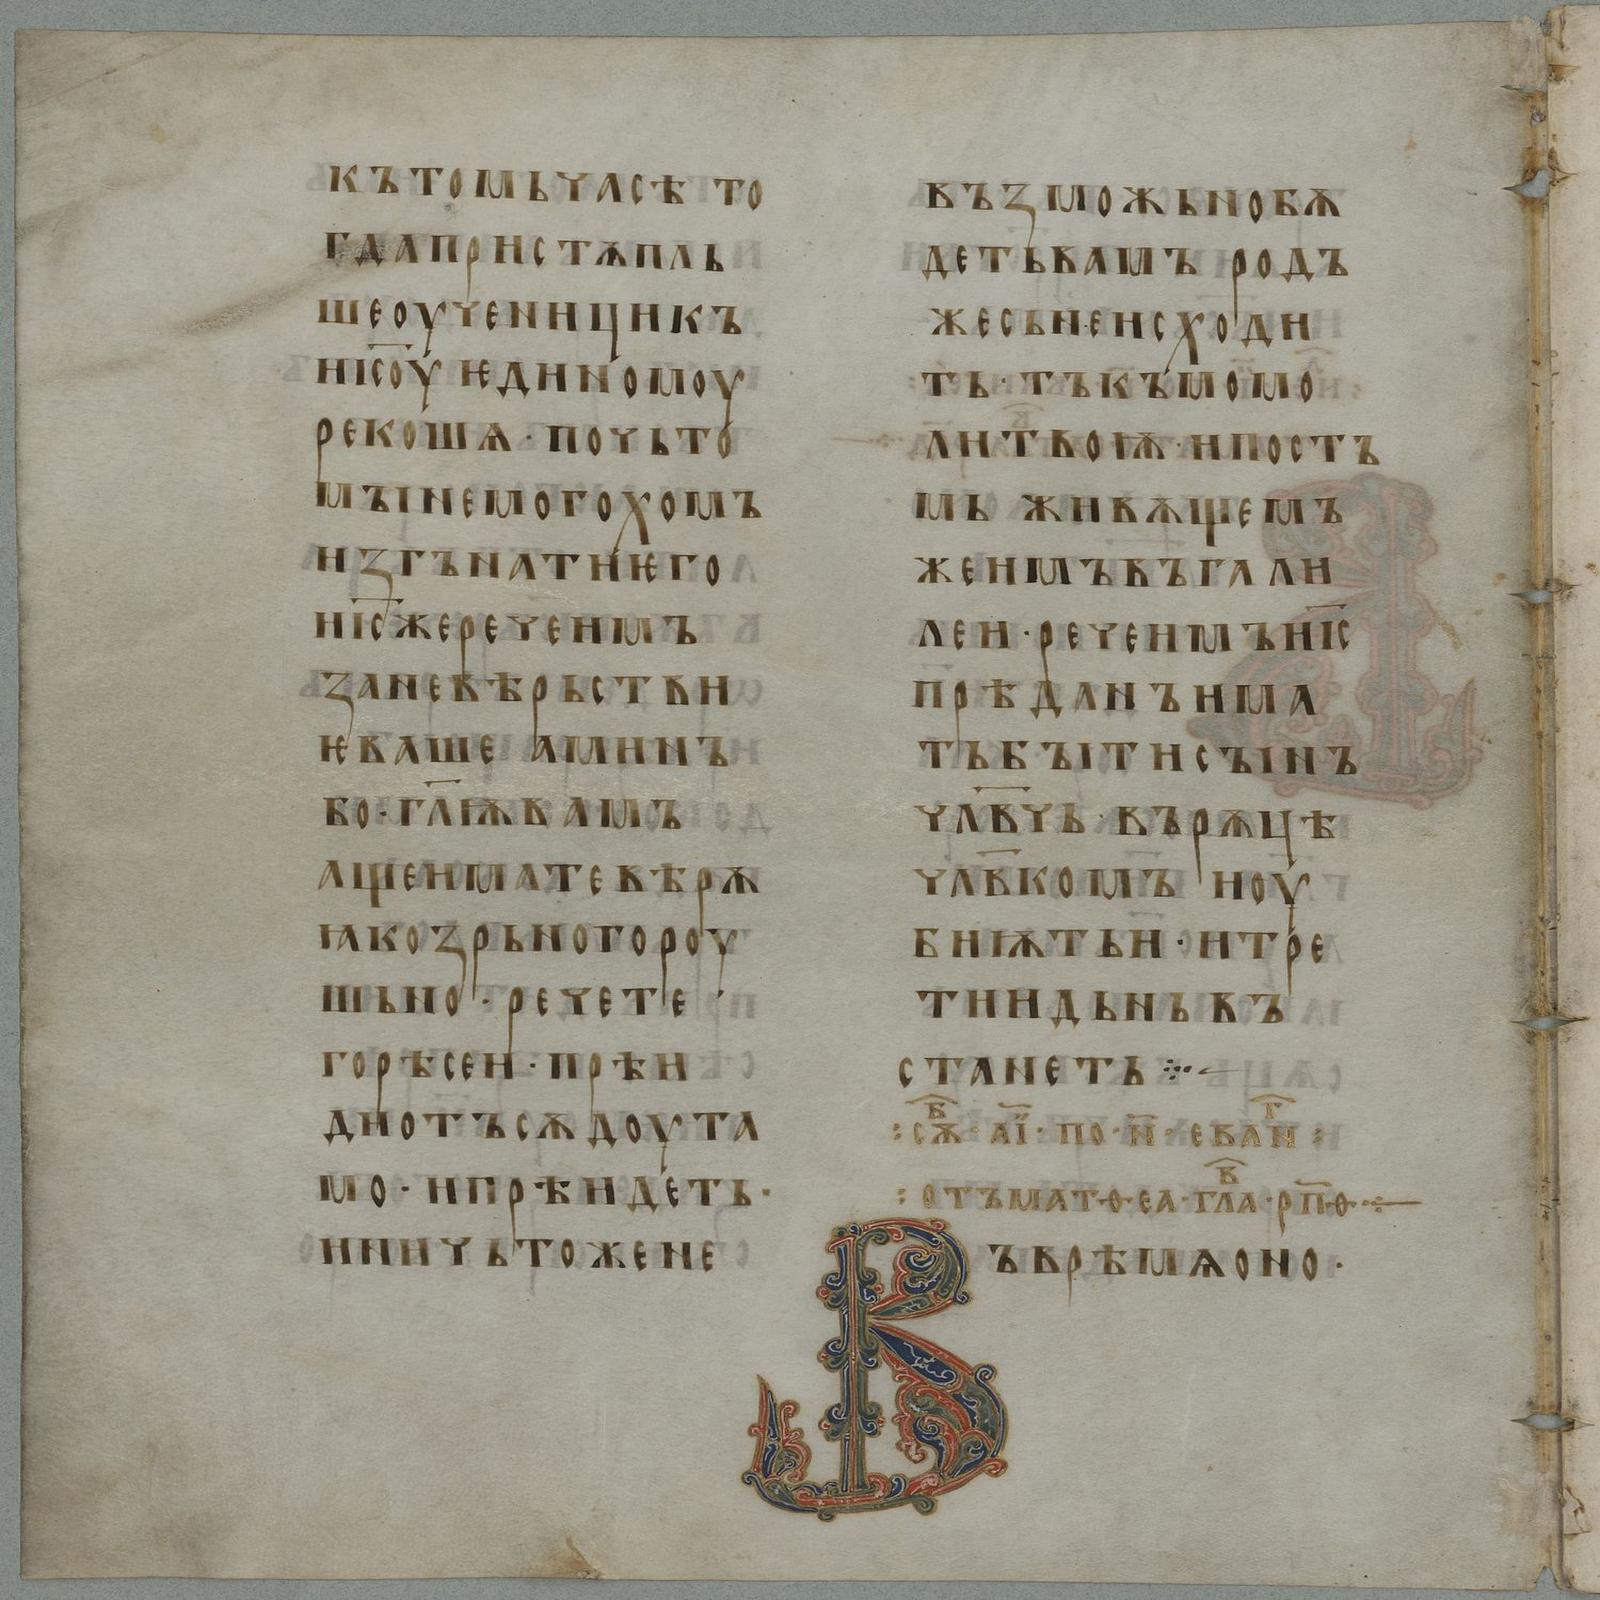 кътомьчасѣ то
гдапристѫпль
шеоученицикъ
иі҃соу ѥдиномоу
рекошѧ · почьто
мꙑнемогохомъ
изгънатиѥго
иі҃сжереченмъ
заневѣрьстви
ѥваше аминъ
бо · гл҃ѭвамъ
ащеиматевѣрѫ
ꙗкозрьногороу
шьно · речете ·
горѣсеи · прѣи
диотъсѫдоута
мо · ипрѣидеть ·
иничьтожене
възможьнобѫ
детьвамъ родъ
жесьнеисходи
ть · тъкъмомо
литвоѭ · ипостъ
мь живѫщемъ
жеимъвъгали
леи · речеимъиі҃с
прѣданъима
тьбꙑтисꙑнъ
чл҃вчь · върѫцѣ
чл҃вкомъ ноу
биѭтьи · итре
тиидьнь въ
станеть ⁘
: сѫ҃б · аі҃ · по · н҃ · еваг҃и :
: отъматѳеа · гл҃ва · рп҃ѳ ·
Въврѣмѧоно ·